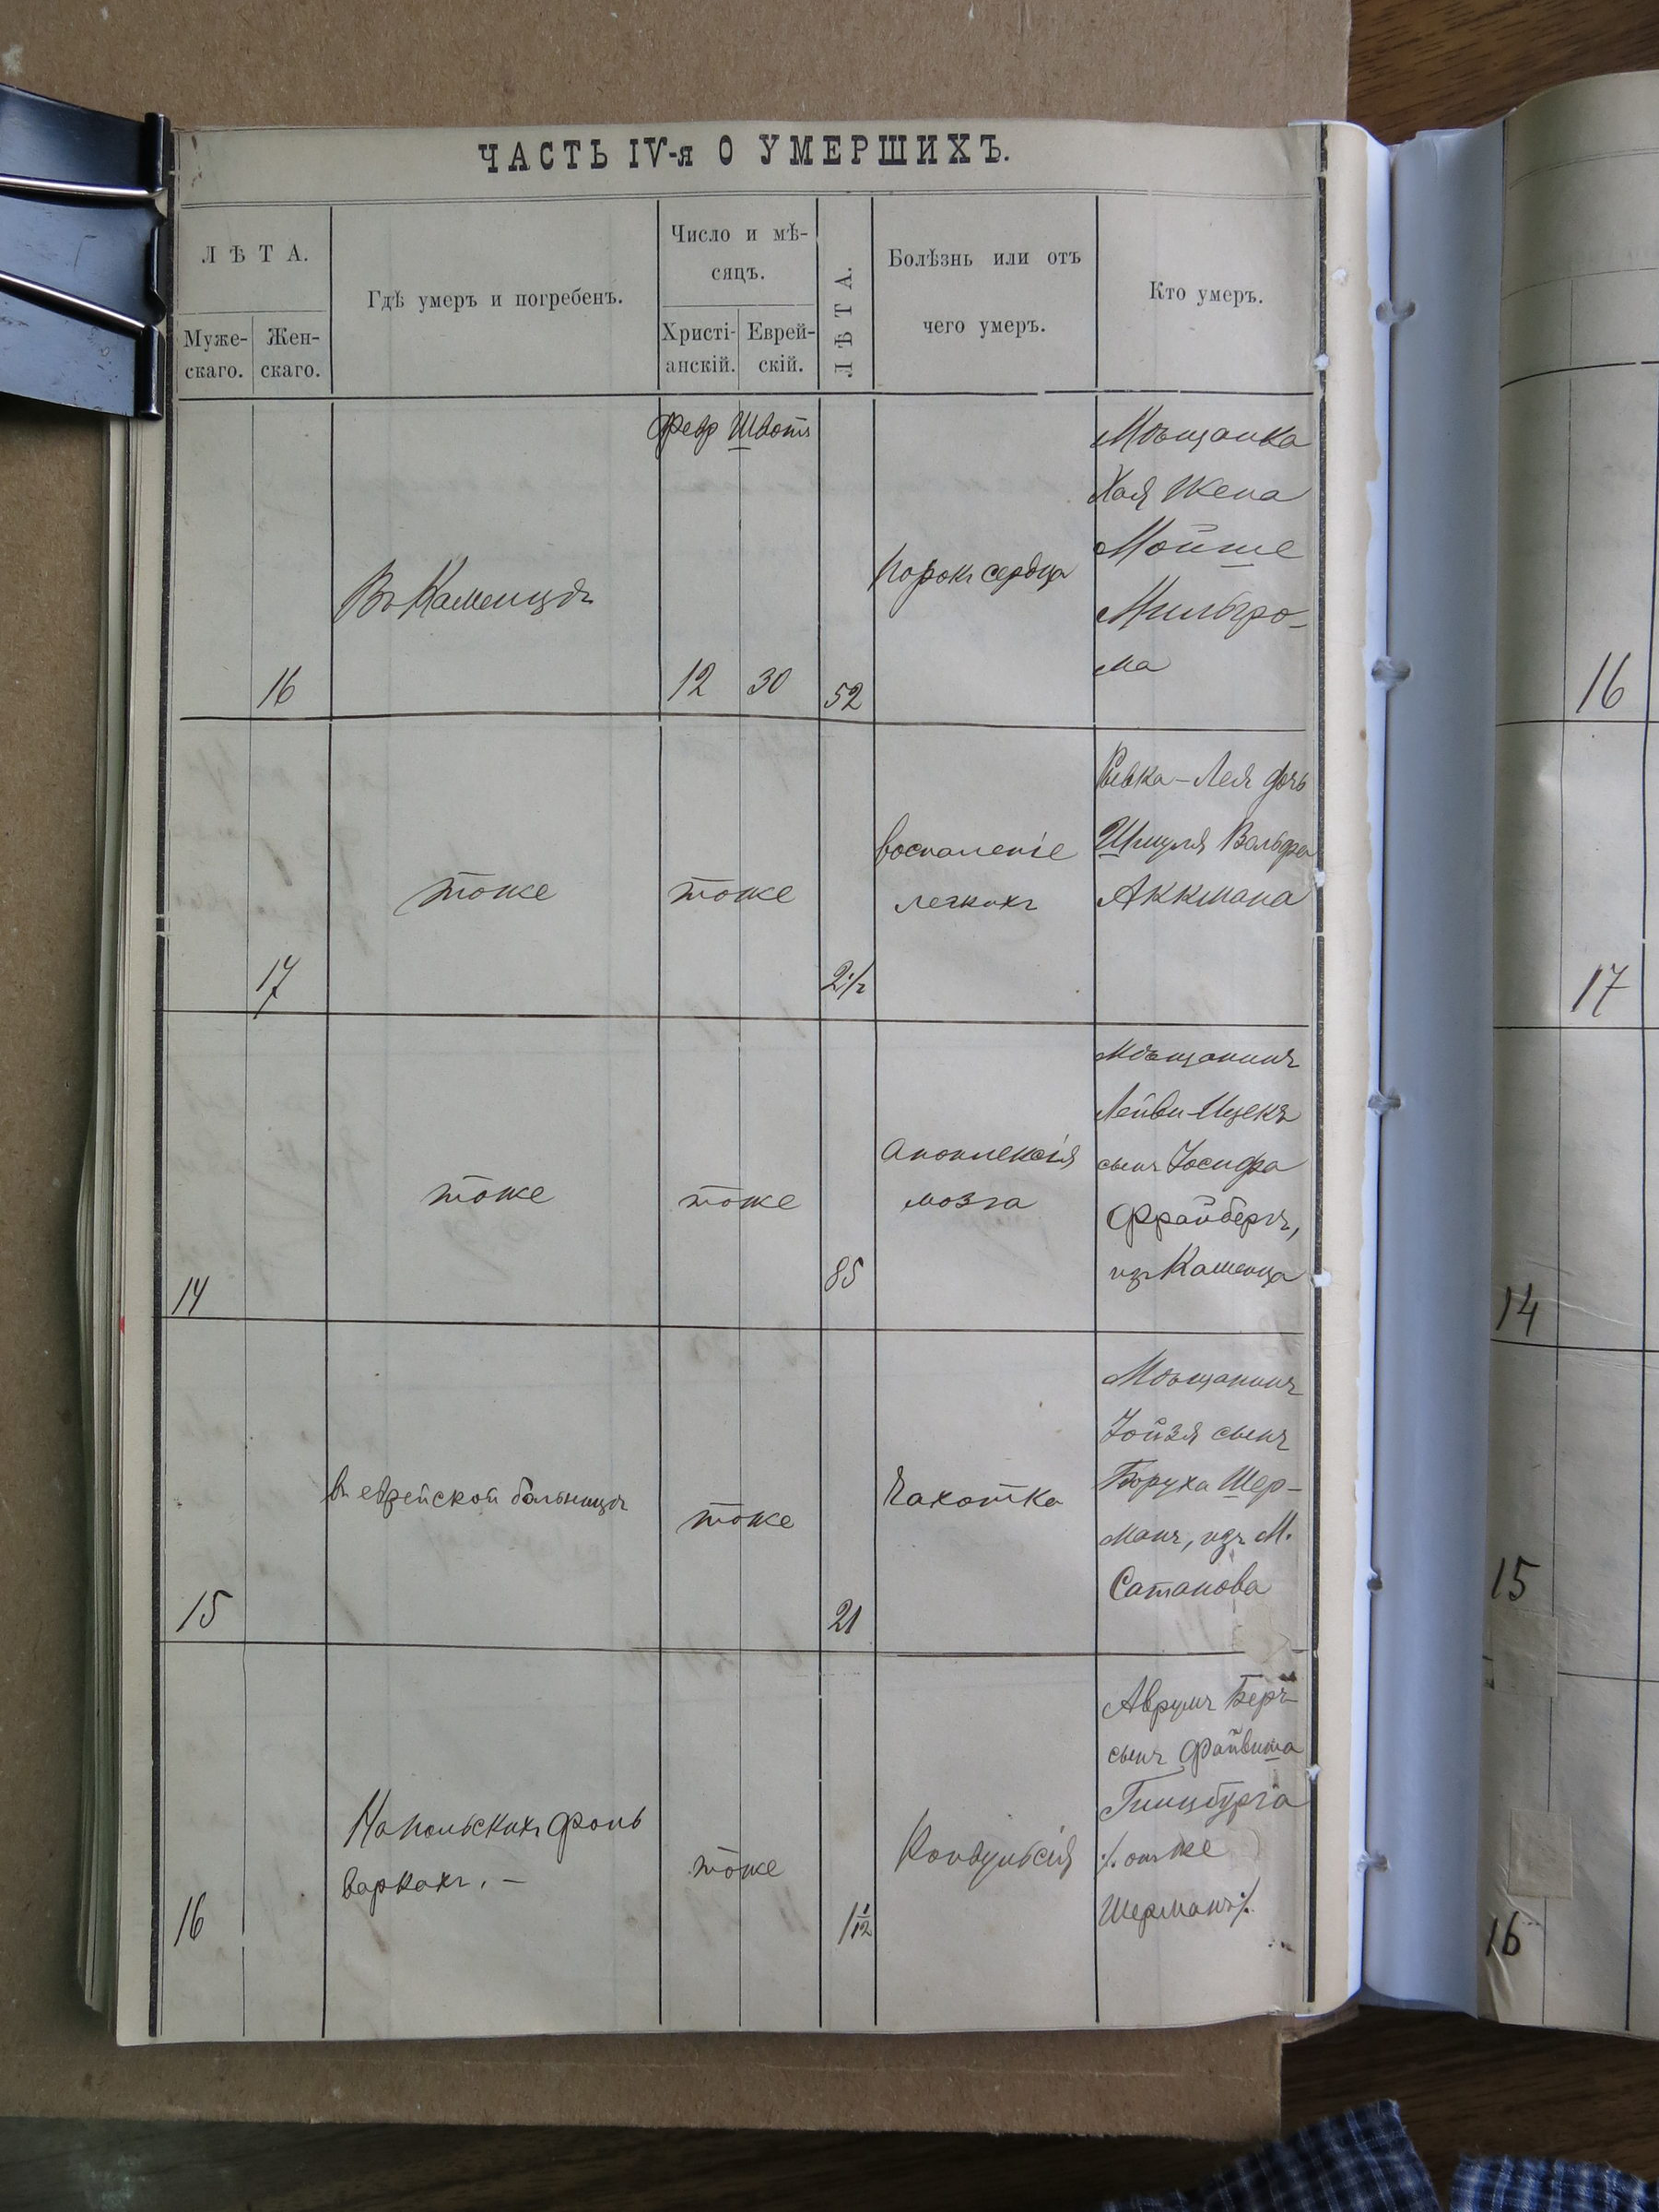 ЧАСТЬ IV-я О УМЕРШИХЪ.
Л Ѣ Т А.
Муже-
скаго.
Жен-
скаго.
Гдѣ умеръ и погребенъ.
Число и мѣ-
сяцъ.
Христі-
анскій.
Еврей-
скій.
Л Ѣ Т А.
Болѣзнь или отъ
чего умеръ.
Кто умеръ.
16
Въ Каменцѣ
Февр Шватъ
12 30
52
Порокъ сердца
Мѣщанка
Хая жена
Мойше
Мильгро-
ма
16
17
тоже
тоже
2 1/2
воспаленіе
легкихъ
Ривка-Лея дочь
Шмуля Вольфа
Аккмана
17
14
тоже
тоже
85
Апоплексія
мозга
Мѣщанинъ
Лейви-Ицекъ
сынъ Іосифа
Фрайбергъ,
изъ Каменца
14
15
въ еврейской больницѣ
тоже
21
Чахотка
Мѣщанинъ
Іойзя сынъ
Боруха Шер-
манъ, изъ М.
Сатанова
15
16
На польскихъ фоль
варкахъ. –
тоже
1 1/12
Конвульсія
Аврумъ Беръ
сынъ Файвиша
Гинцбурга
·/. онъ же
Шерманъ ·/.
16